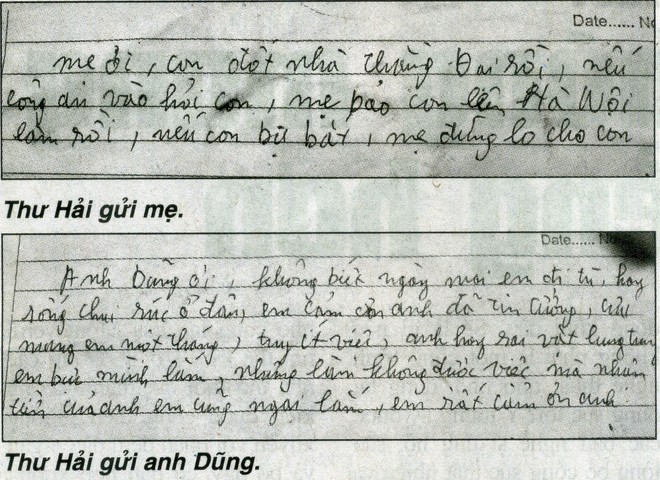 Date...... No
mẹ ơi, con đốt nhà thằng Đại rồi, nếu
công an vào hỏi con, mẹ bảo con lên Hà Nội
làm rồi, nếu con bị bắt, mẹ đừng lo cho con
Thư Hải gửi mẹ.
Date...... No
Anh Dũng ơi, không biết ngày mai em đi tù, hay
sống chui rúc ở đâu, em cảm ơn anh đã tin tưởng, cưu
mang em một tháng, tuy ít việc, anh hay sai vặt lung tung
em bực mình lắm, nhưng làm không được việc mà nhận
tiền của anh em cũng ngại lắm, em rất cảm ơn anh.
Thư Hải gửi anh Dũng.